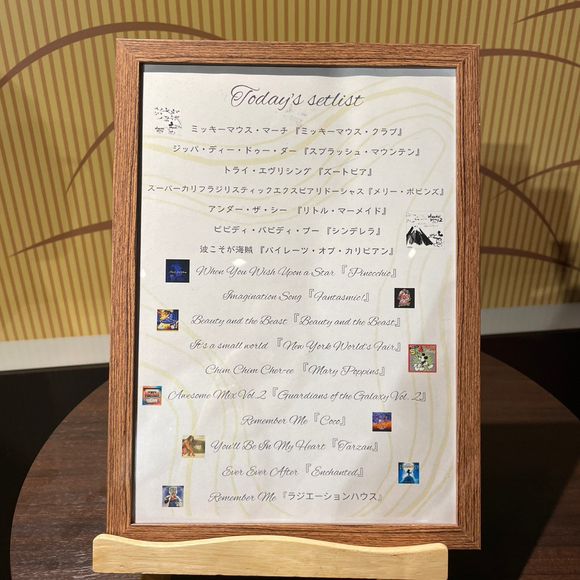 Today's setlist
ミッキーマウス・マーチ『ミッキーマウス・クラブ』
ジッパ・ディー・ドゥー・ダー『スプラッシュ・マウンテン』
トライ・エヴリシング『ズートピア』
スーパーカリフラジリスティックエクスピアリドーシャス『メリー・ポピンズ』
アンダー・ザ・シー『リトル・マーメイド』
ビビディ・バビディ・ブー『シンデレラ』
彼こそが海賊『パイレーツ・オブ・カリビアン』
When You Wish Upon a Star『Pinocchio』
Imagination Song『Fantasmic!』
Beauty and the Beast『Beauty and the Beast』
It's a small world『New York World's Fair』
Chim Chim Cher-ee『Mary Poppins』
Awesome Mix Vol.2『Guardians of the Galaxy Vol. 2』
Remember Me『Coco』
You'll Be In My Heart『Tarzan』
Ever Ever After『Enchanted』
Remember Me『ラジエーションハウス』